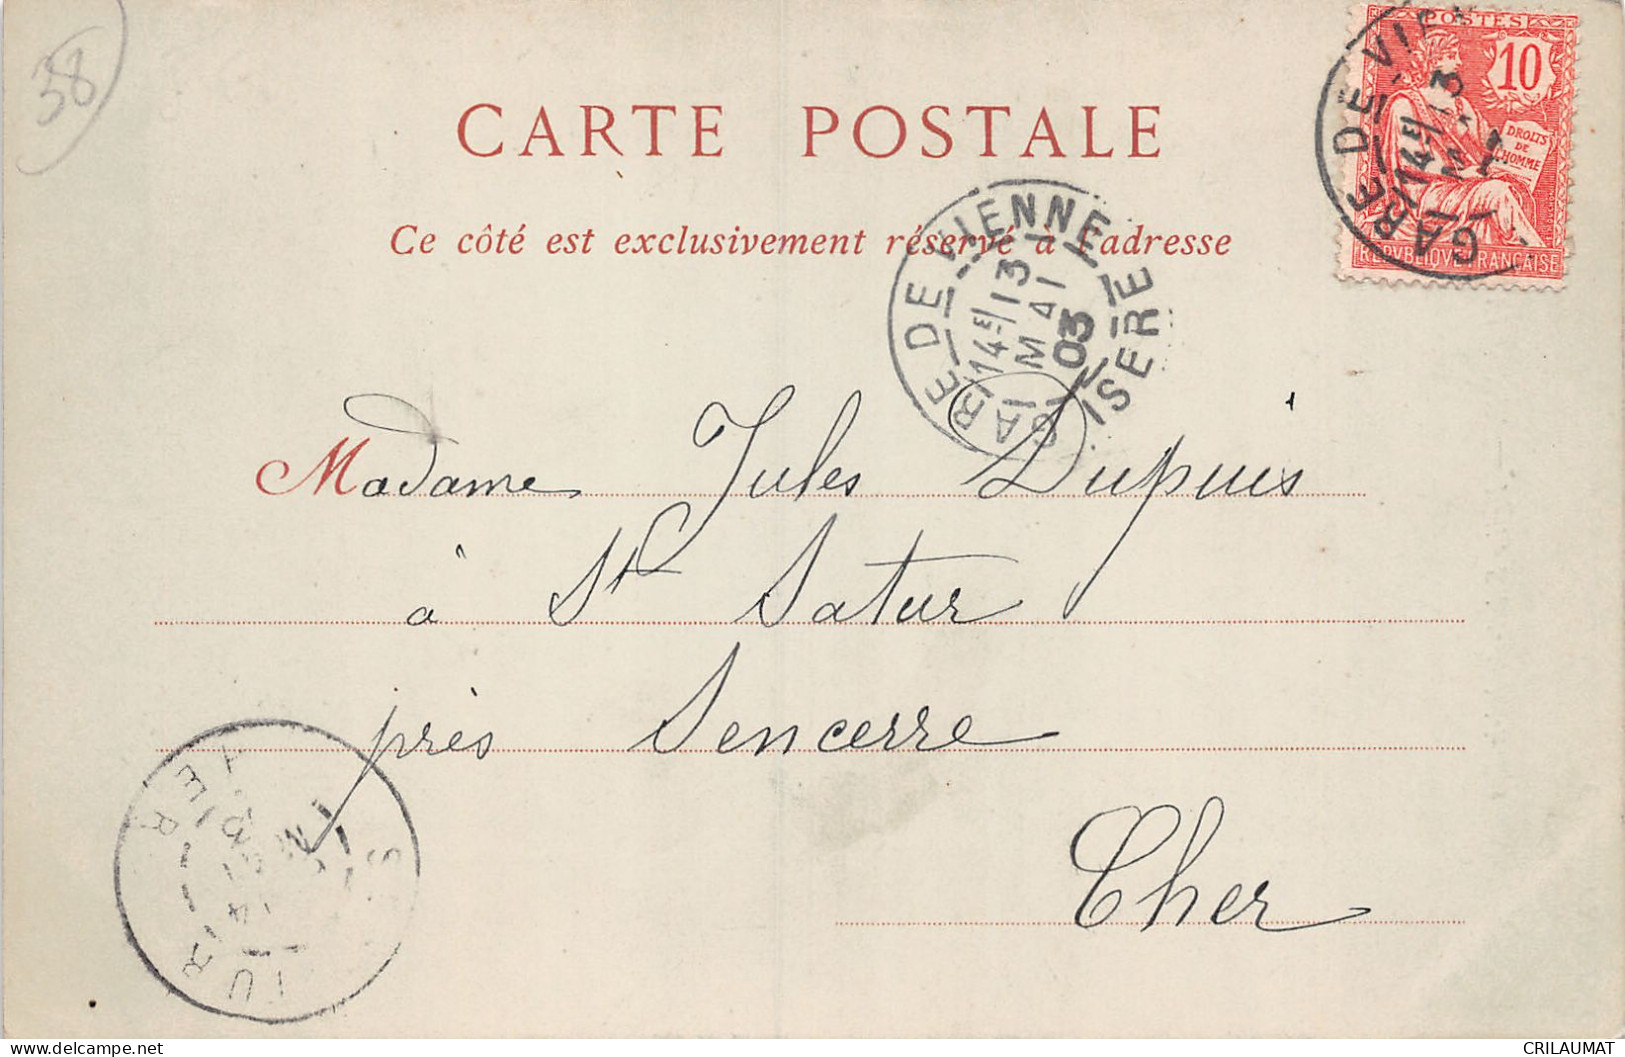 38
CARTE POSTALE
Ce côté est exclusivement réservé à l'adresse
POSTES
10
DROITS
DE
L'HOMME
REPVBLIQVE FRANÇAISE
GARE DE VIEN
14E 13
GARE DE VIENNE ISERE
14E 13
MAI
03
Madame Jules Dupuis
à St Satur
près Sencerre
Cher
delcampe.net
CRILAUMAT